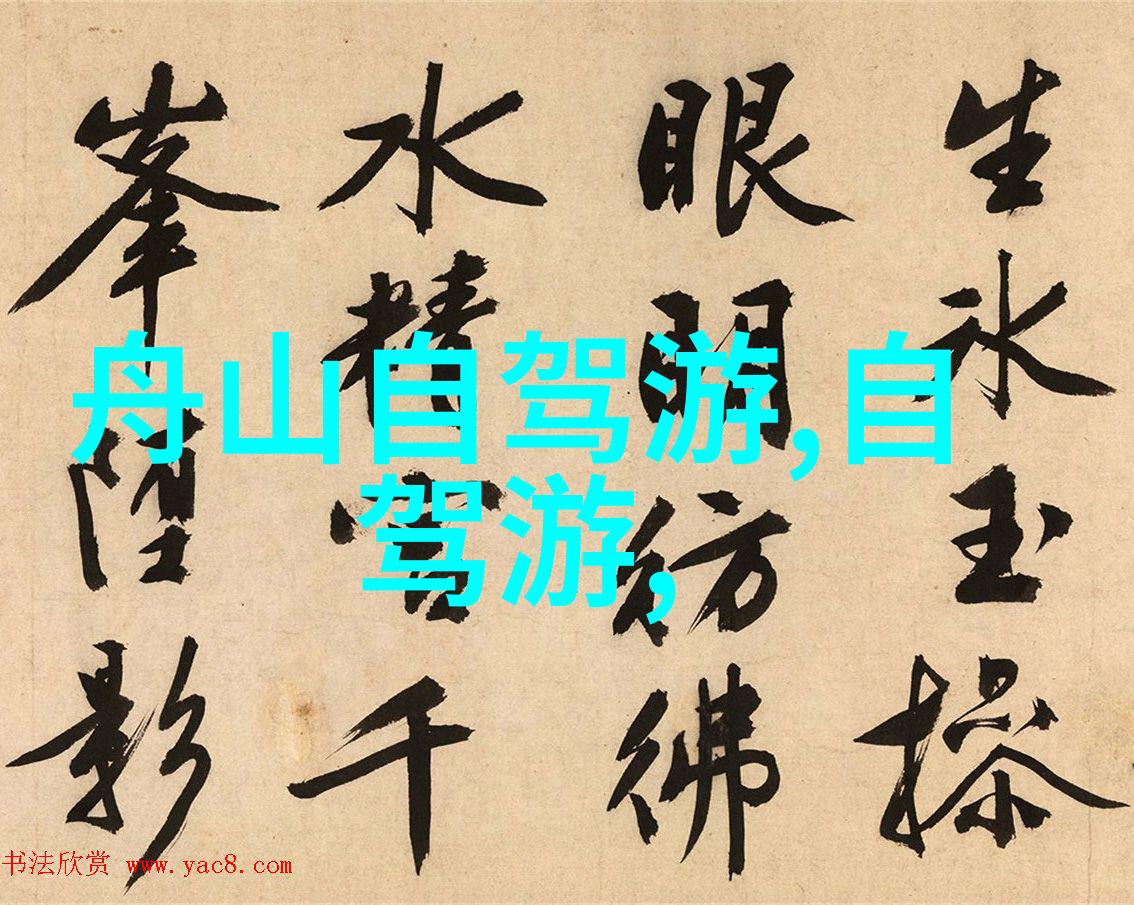 生氷玉操
眼明彷彿
水精宫千
峯堕影
舟山自驾游,自
驾游,
书法欣赏 www.yac8.com